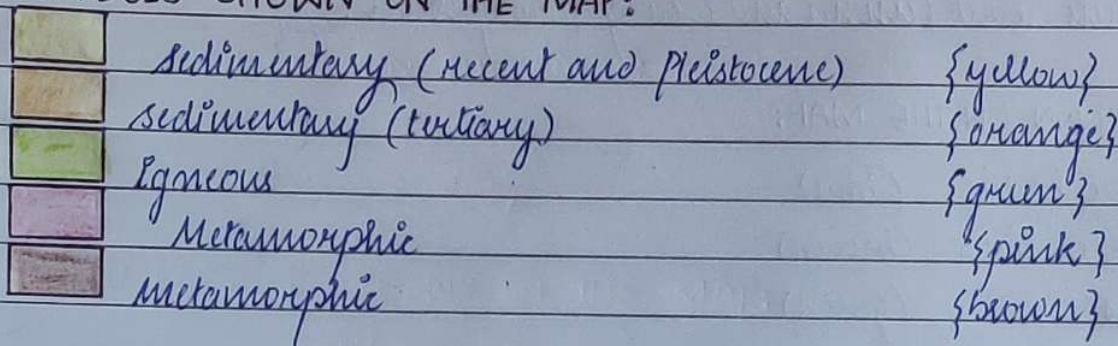 SHOWN ON THE MAP:
sedimentary (recent and Pleistocene) {yellow}
sedimentary (tertiary) {orange}
Igneous {green}
Metamorphic {pink}
metamorphic {brown}